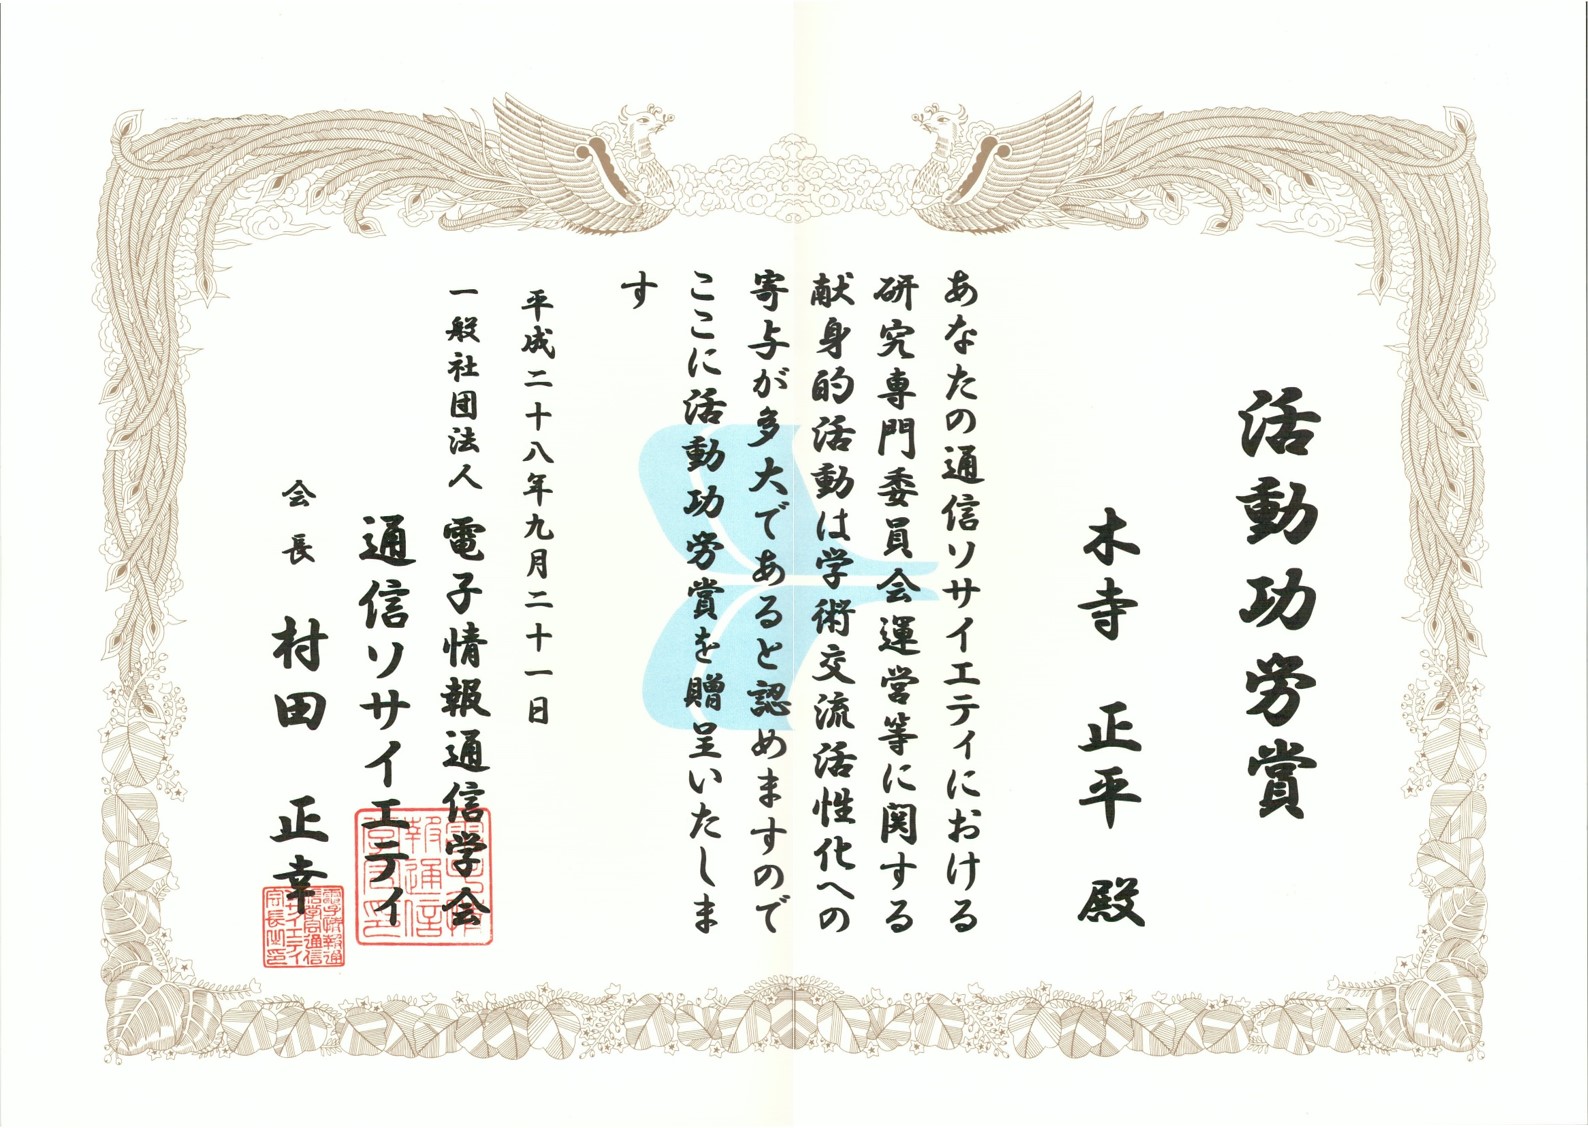 活動功労賞
木寺 正平 殿
あなたの通信ソサイエティにおける
研究専門委員会運営等に関する
献身的活動は学術交流活性化への
寄与が多大であると認めますので
ここに活動功労賞を贈呈いたしま
す
平成二十八年九月二十一日
一般社団法人 電子情報通信学会
通信ソサイエティ
会長 村田 正幸